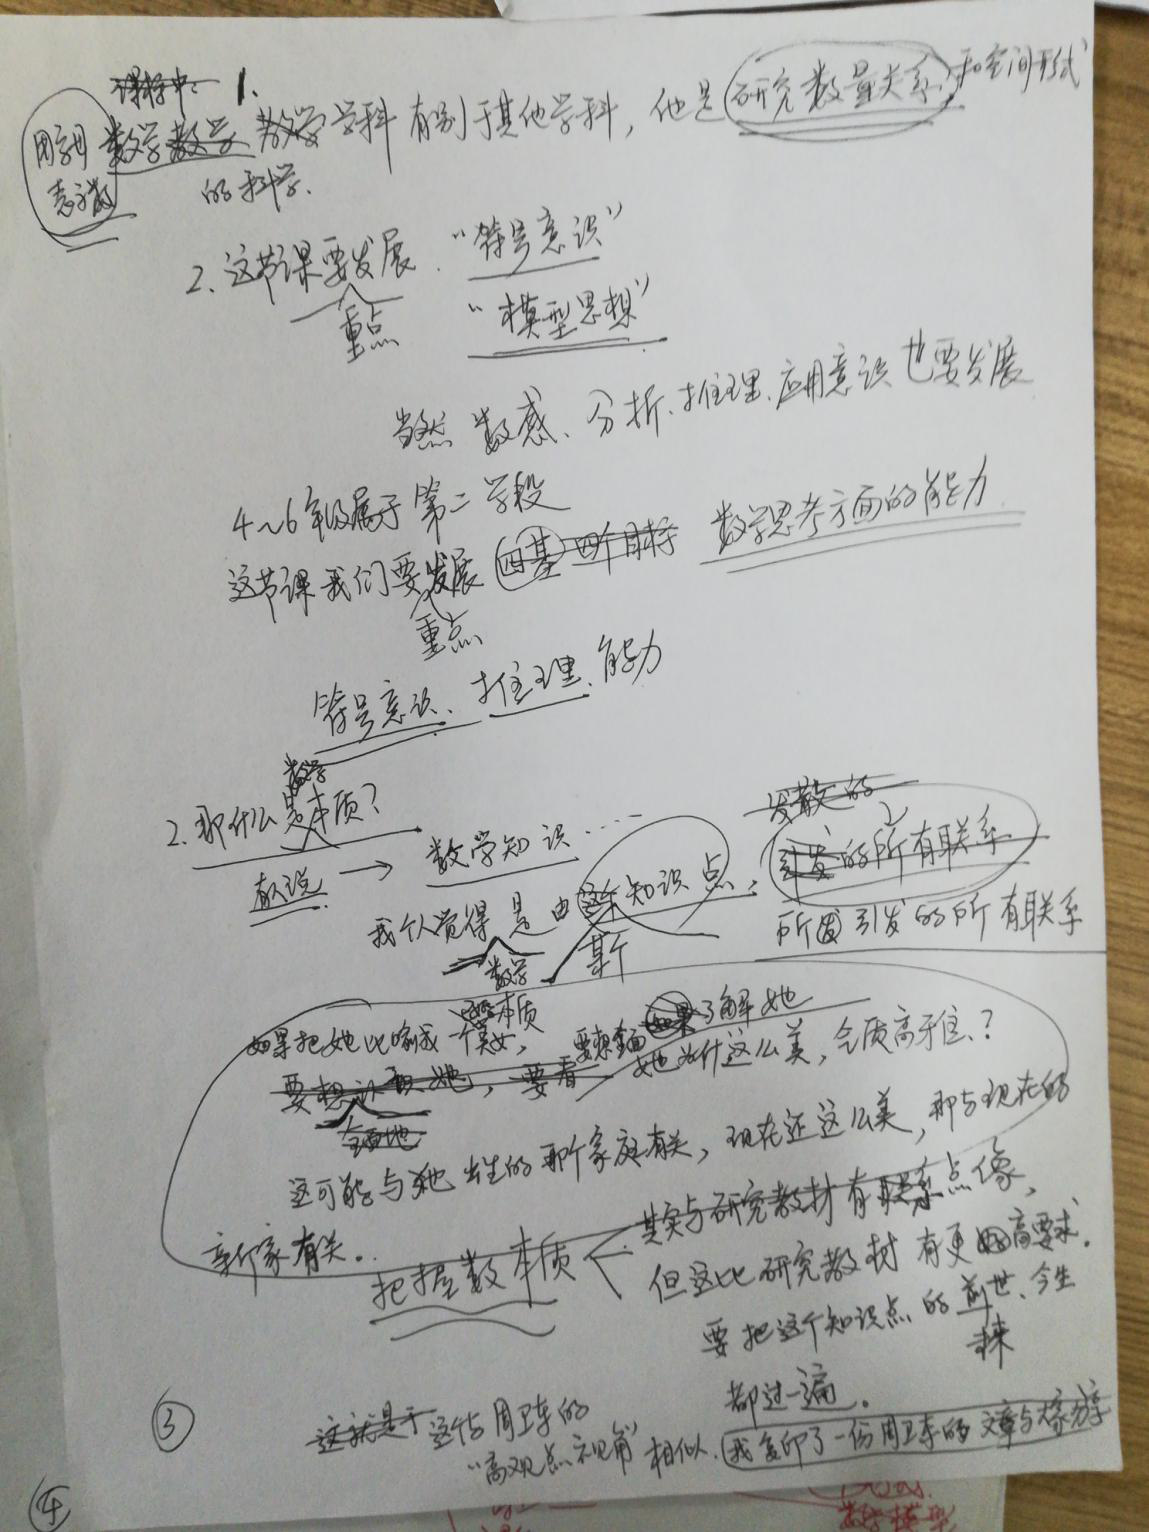 课标中: 1.
用字母 数学教学 教学学科有别于其他学科，他是研究数量关系和空间形式
表示数 的科学.
2.这节课要发展. “符号意识”
重点 “模型思想”
当然 数感、分析、推理、应用意识也要发展
4~6年级属于第二学段
这节课我们要发展 四基 四个目标 数学思考方面的能力
重点
符号意识、推理、能力
数学
2.那什么是本质? 发散的
教说 → 数学知识…… 引发的所有联系
我个人觉得是由这个知识点, 所 引发的所有联系
数学 某
本质
如果把她比喻成一个美女, 要想全面如果了解她
要想认识她, 要看 她为什这么美,气质高雅、?
全面地
这可能与她出生的那个家庭有关, 现在还这么美, 那与现在的
新个家有关.. 其实与研究教材有联系点像,
把握数本质 < 但这比研究教材有更高要求.
要把这个知识点的前世、今生
来
都过一遍。
③ 这就是于这个与周卫东的
“高观点视角”相似. 我复印了一份周卫东的文章与大家分享
④
数学模型